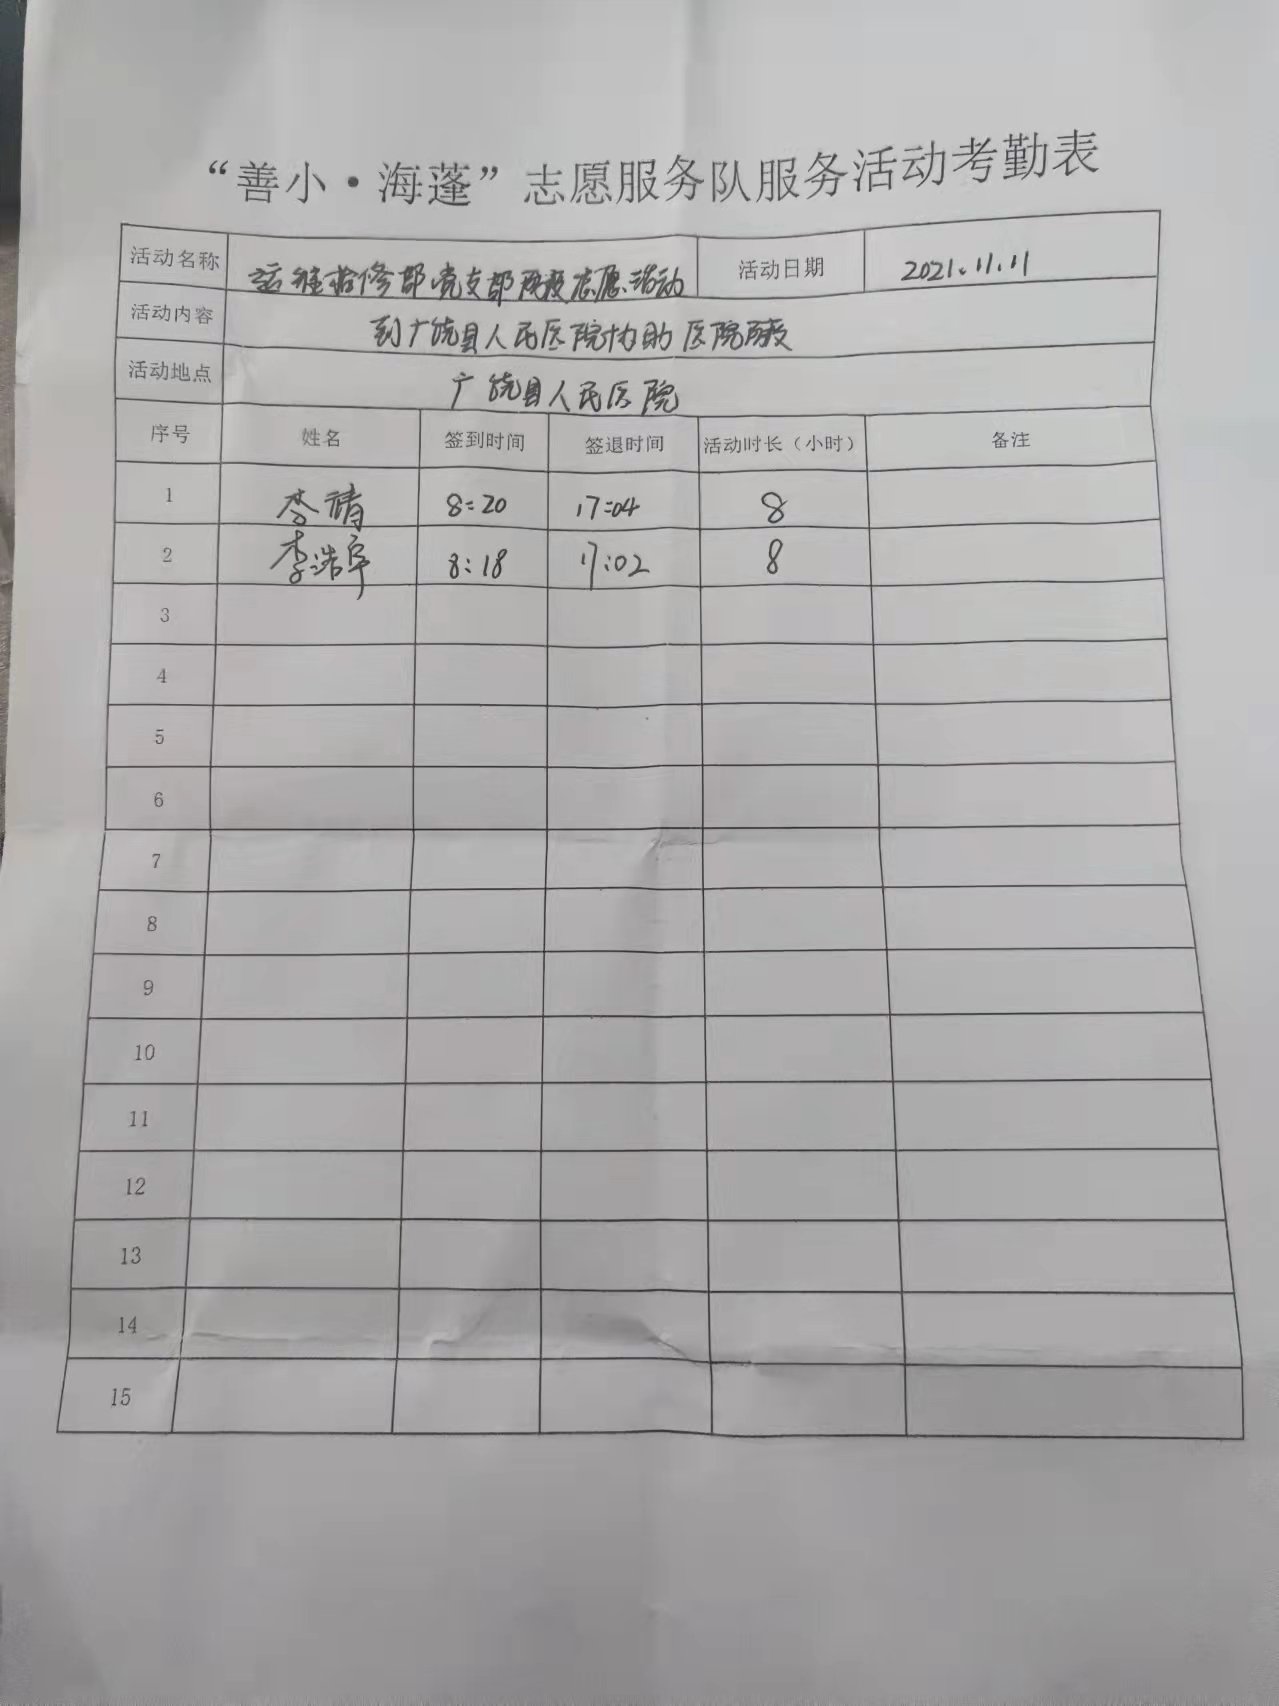 “善小·海蓬”志愿服务队服务活动考勤表
活动名称 运维检修部党支部防疫志愿活动 活动日期 2021.11.11
活动内容 到广饶县人民医院协助医院防疫
活动地点 广饶县人民医院
序号 姓名 签到时间 签退时间 活动时长（小时） 备注
1 李靖 8:20 17:04 8
2 李浩 8:18 17:02 8
3
4
5
6
7
8
9
10
11
12
13
14
15